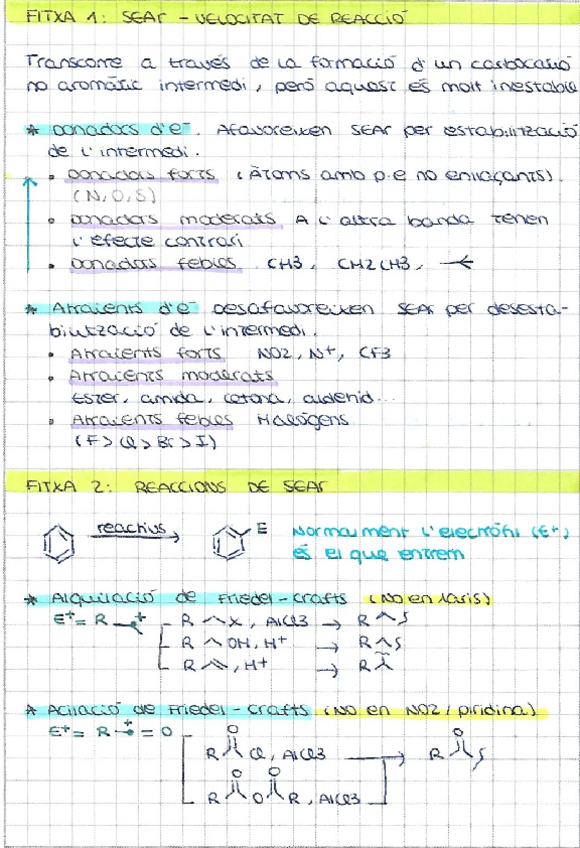 FITXA 1: SEAr - VELOCITAT DE REACCIÓ
Transcorre a través de la formació d'un carbocatió
no aromàtic intermedi, però aquest és molt inestable
* Donadors d'e⁻. Afavoreixen SEAr per estabilització
de l'intermedi.
• Donadors forts (Àtoms amb p.e no enllaçants).
(N, O, S)
• Donadors moderats A l'altra banda tenen
l'efecte contrari
• Donadors febles CH3, CH2CH3,
* Atraients d'e⁻ Desafavoreixen SEAr per desesta-
bilització de l'intermedi.
• Atraients forts NO2, N⁺, CF3
• Atraients moderats
Ester, amida, cetona, aldehid...
• Atraients febles Halògens
(F > Cl > Br > I)
FITXA 2: REACCIONS DE SEAr
reactius E Normalment l'electròfil (E⁺)
és el que entrem
* Alquilació de Friedel-Crafts (NO en
E⁺ = R + R X, AlCl3 → R
R OH, H⁺ → R
R , H⁺ → R
* Acilació de Friedel-Crafts (NO en NO2 / piridina)
E⁺ = R + = O
O O
R Cl, AlCl3 → R
O O
R O R, AlCl3